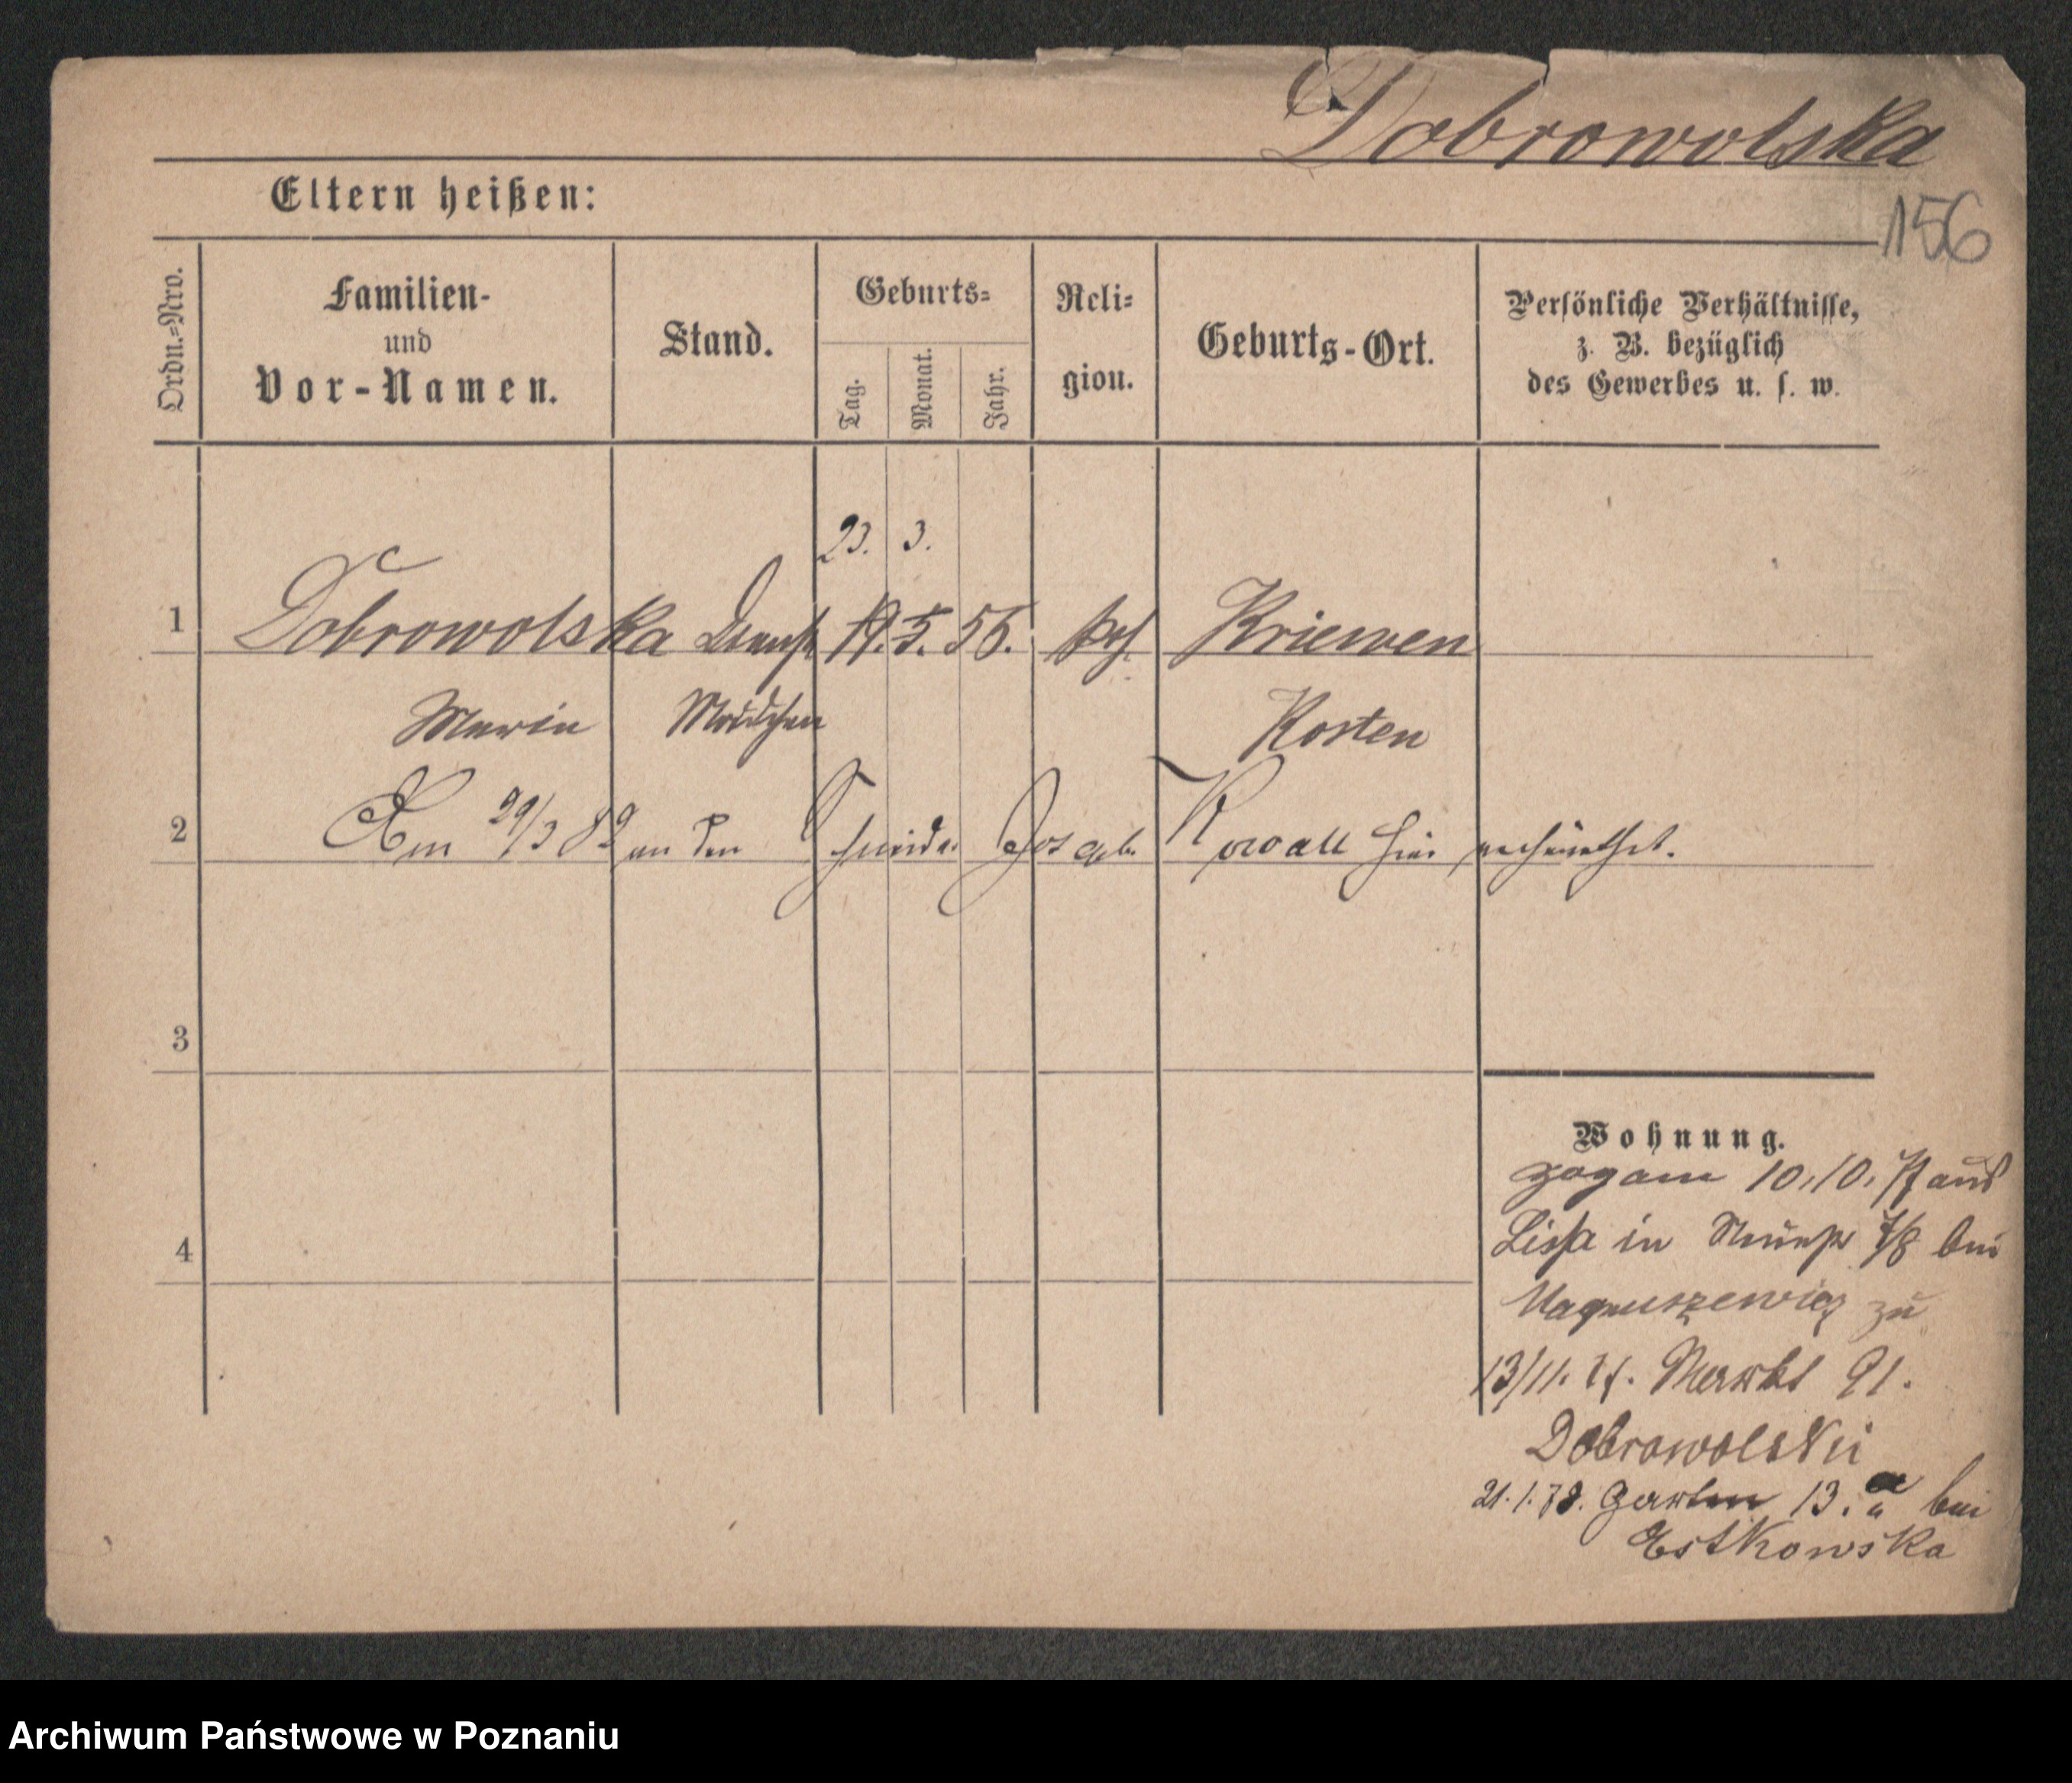 Dobrowolska
156
Eltern heißen:
Ordn.=Nro.
Familien-
und
Vor-Namen.
Stand.
Geburts=
Tag.
Monat.
Jahr.
Reli=
gion.
Geburts-Ort.
Persönliche Verhältnisse,
z. B. bezüglich
des Gewerbes u. s. w.
23. 3.
1 Dobrowolska Dienst 5. 56. Kriewen
Marie Mädchen Kosten
2 Am 29/3 82 an den Schneider Josef Kowall hier verheirathet.
3
4
Wohnung.
zog am 10.10. aus
Lissa in bei
Magnuszewicz zu
13/11. Markt 91.
Dobrowolski
21.1.78. Garten 13. a bei
Estkowska
Archiwum Państwowe w Poznaniu